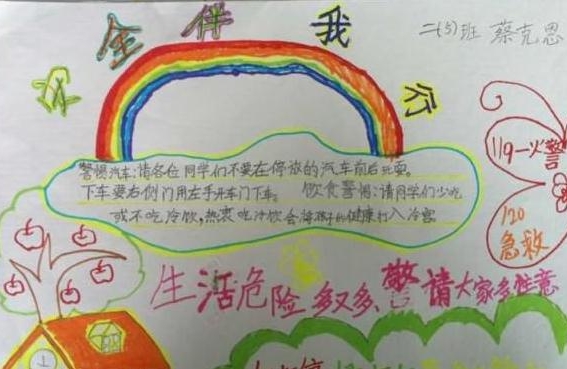 安全伴我行
二(5)班 蔡克恩
警惕汽车:请各位同学们不要在停放的汽车前后玩耍。
下车要右侧门用左手开车门下车。 饮食警惕:请同学们少吃
或不吃冷饮,热衷吃冷饮会将孩子的健康打入冷宫
119-火警
120
急救
生活危险多又多、警请大家多注意